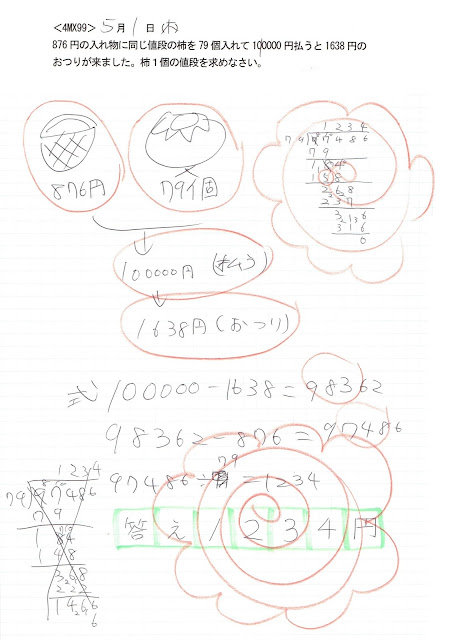 <4MX99> 5月1日木
876円の入れ物に同じ値段の柿を79個入れて100000円払うと1638円の
おつりが来ました。柿1個の値段を求めなさい。
876円
79個
100000円 (払う)
1638円(おつり)
1234
79)97486
79
184
158
268
237
316
316
0
式 100000-1638=98362
98362-876=97486
97486÷79=1234
答え1234円
1234
79)97486
79